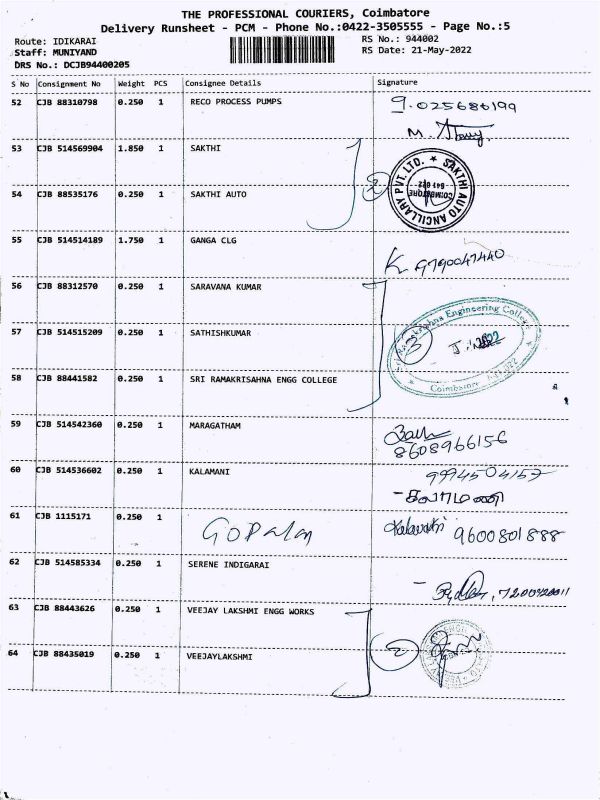 THE PROFESSIONAL COURIERS, Coimbatore
Delivery Runsheet - PCM - Phone No.:0422-3505555 - Page No.:5
Route: IDIKARAI RS No.: 944002
Staff: MUNIYAND RS Date: 21-May-2022
DRS No.: DCJB94400205
S No Consignment No Weight PCS Consignee Details Signature
52 CJB 88310798 0.250 1 RECO PROCESS PUMPS 9025686199
53 CJB 514569904 1.850 1 SAKTHI
2
SAKTHI AUTO ANCILLARY PVT. LTD. COIMBATORE 641 022
54 CJB 88535176 0.250 1 SAKTHI AUTO
55 CJB 514514189 1.750 1 GANGA CLG K 9790047440
56 CJB 88312570 0.250 1 SARAVANA KUMAR
57 CJB 514515209 0.250 1 SATHISHKUMAR
3
Ramakrishna Engineering College Coimbatore
58 CJB 88441582 0.250 1 SRI RAMAKRISAHNA ENGG COLLEGE
59 CJB 514542360 0.250 1 MARAGATHAM
8608966156
60 CJB 514536602 0.250 1 KALAMANI 9994504157
கலாமணி
61 CJB 1115171 0.250 1 GOPalan Kalavathi 9600801888
62 CJB 514585334 0.250 1 SERENE INDIGARAI
63 CJB 88443626 0.250 1 VEEJAY LAKSHMI ENGG WORKS
2
64 CJB 88435019 0.250 1 VEEJAYLAKSHMI